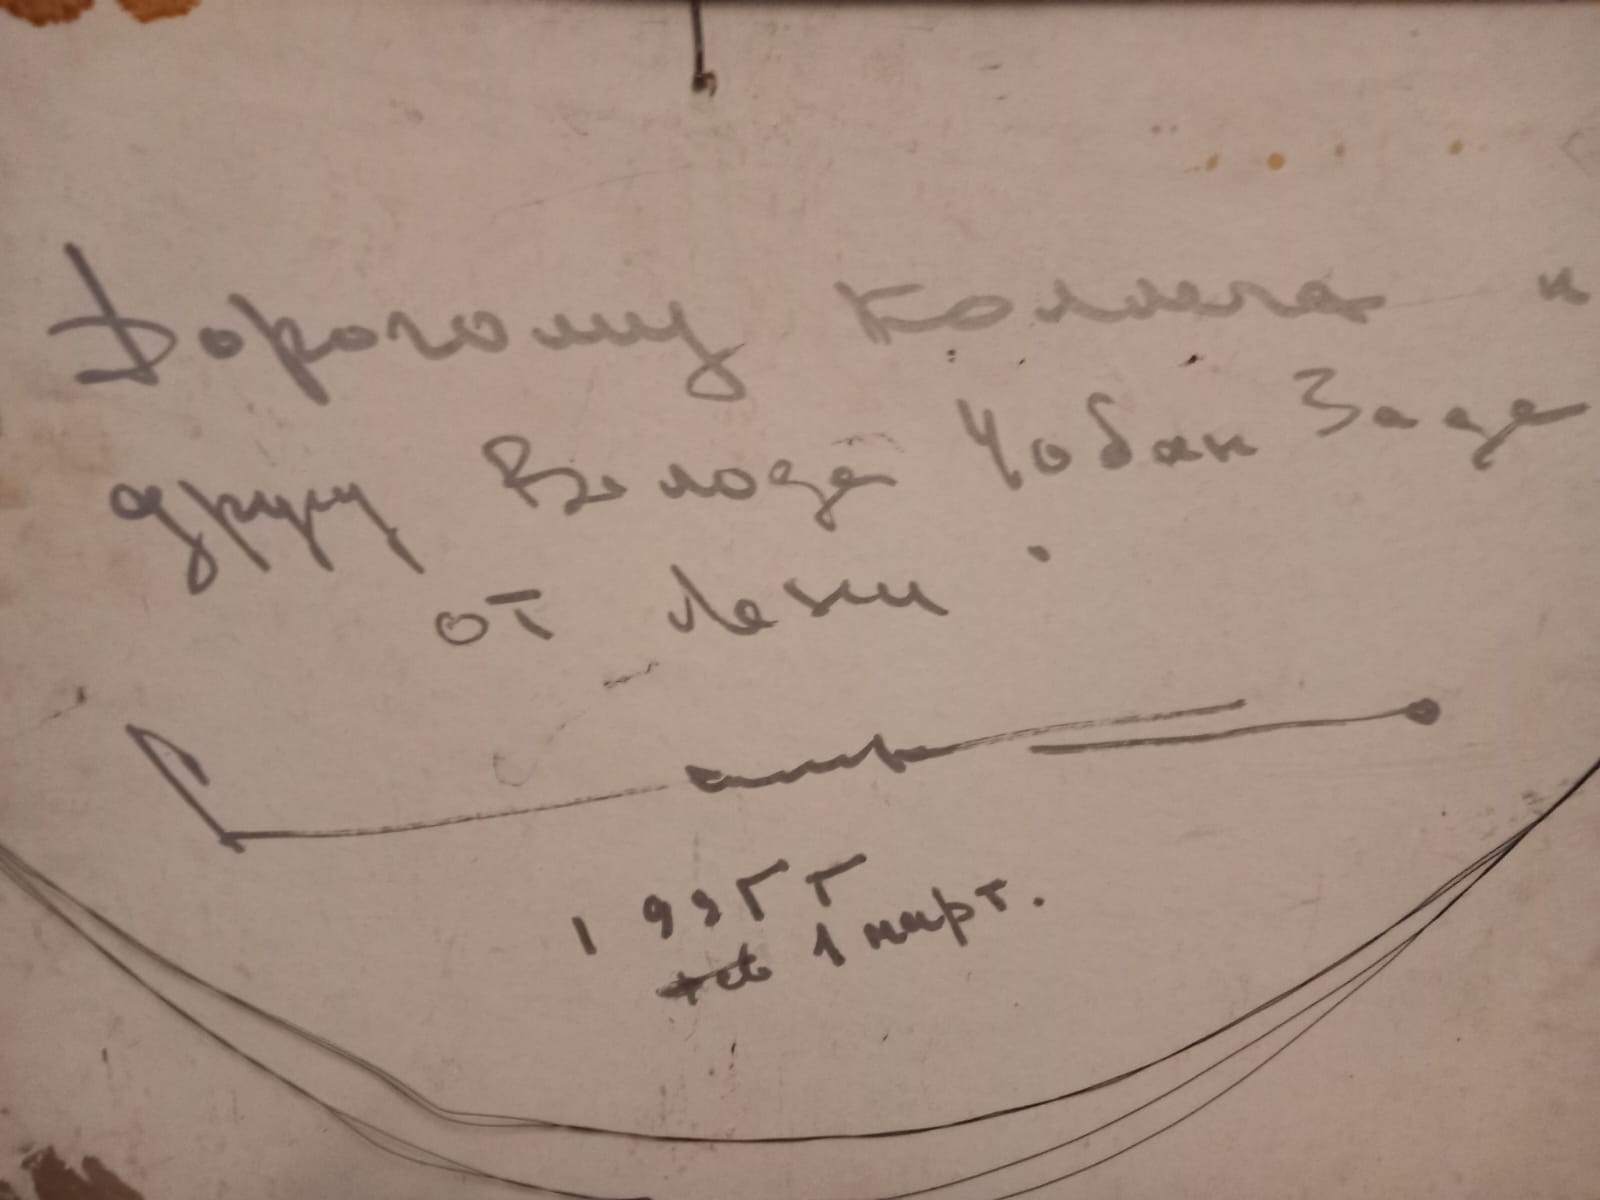 Дорогому коллеге и
другу Володе Чобан Заде
от Лени
1995 г
1 март.